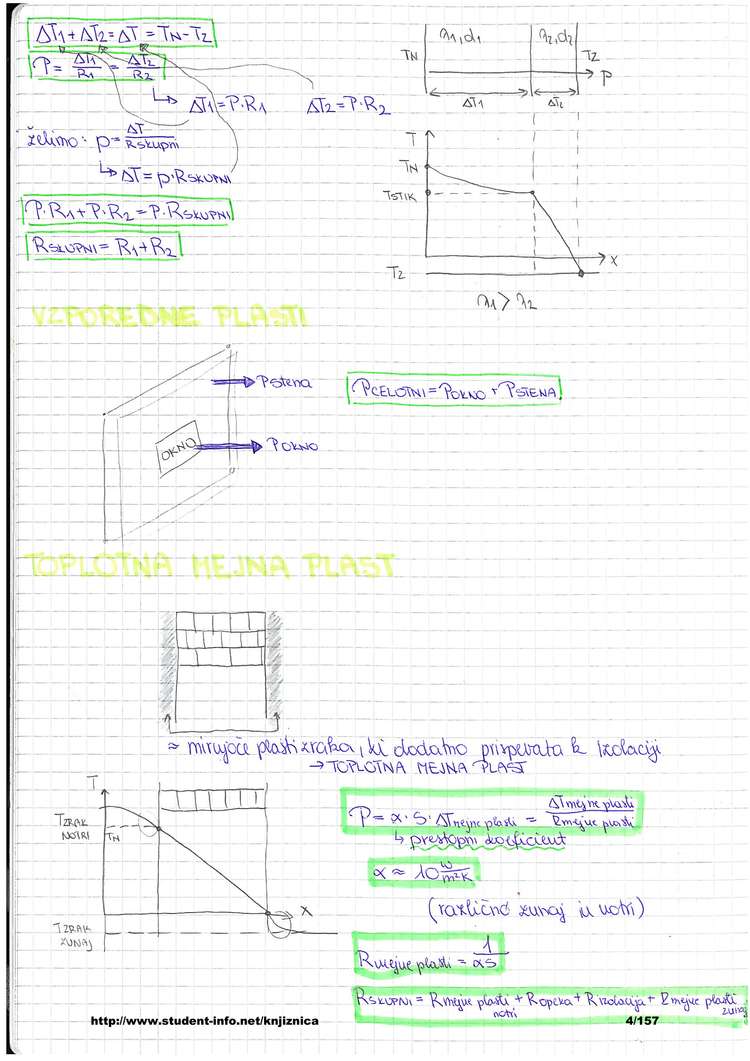 ΔT1 + ΔT2 = ΔT = TN - TZ
P = ΔT1/R1 = ΔT2/R2
↳ ΔT1 = P·R1 ΔT2 = P·R2
želimo: P = ΔT/RSKUPNI
↳ ΔT = P·RSKUPNI
P·R1 + P·R2 = P·RSKUPNI
RSKUPNI = R1 + R2
λ1, d1 λ2, d2
TN TZ
P
ΔT1 ΔT2
T
TN
TSTIK
x
TZ
λ1 > λ2
VZPOREDNE PLASTI
Pstena
OKNO
POKNO
PCELOTNI = POKNO + PSTENA
TOPLOTNA MEJNA PLAST
≈ mirujoče plasti zraka, ki dodatno prispevata k izolaciji
→ TOPLOTNA MEJNA PLAST
T
TZRAK
NOTRI
TN
x
TZRAK
ZUNAJ
P = α·S·ΔTmejne plasti = ΔTmejne plasti/Rmejne plasti
↳ prestopni koeficient
α ≈ 10 W/m²K
(različno zunaj in notri)
Rmejne plasti = 1/αS
RSKUPNI = Rmejne plasti notri + Ropeka + Rizolacija + Rmejne plasti zunaj
http://www.student-info.net/knjiznica 4/157